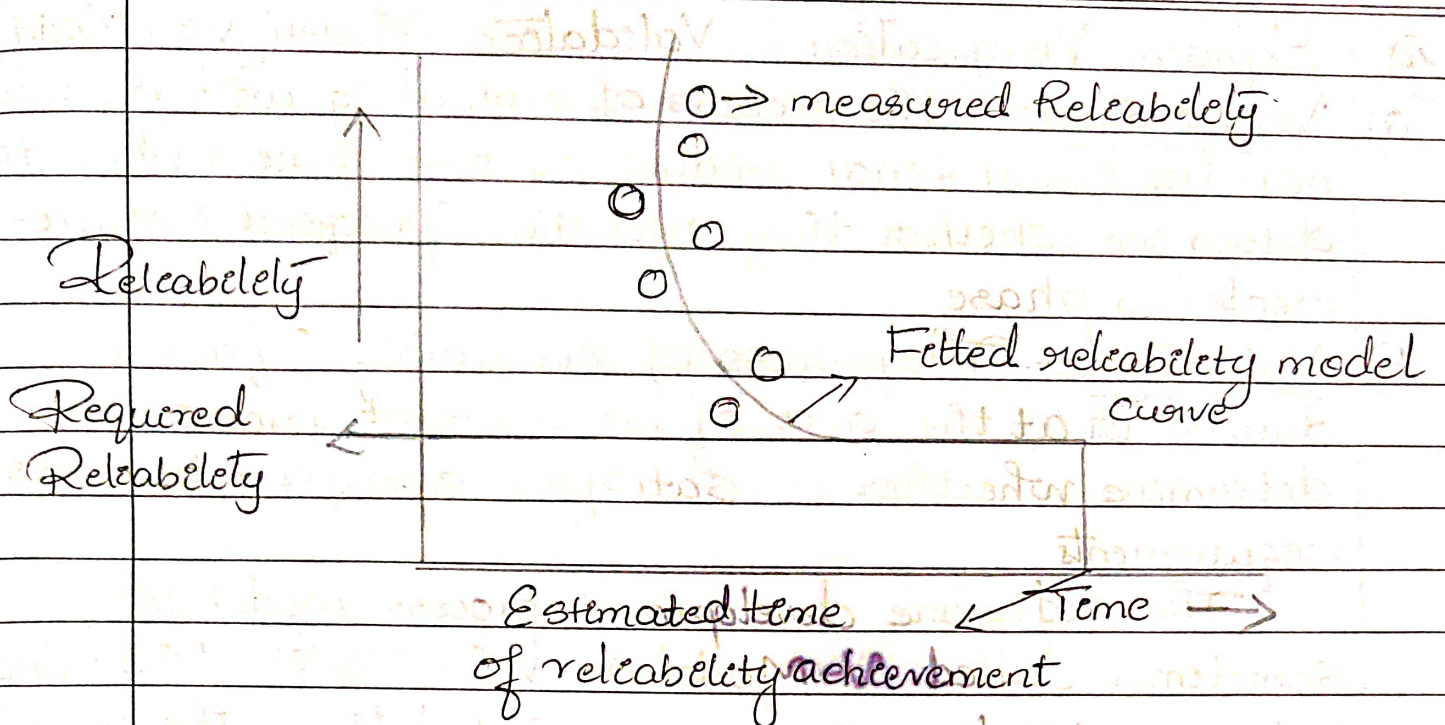 measured Reliability
Reliability
Fitted reliability model
curve
Required
Reliability
Estimated time
Time
of reliability achievement